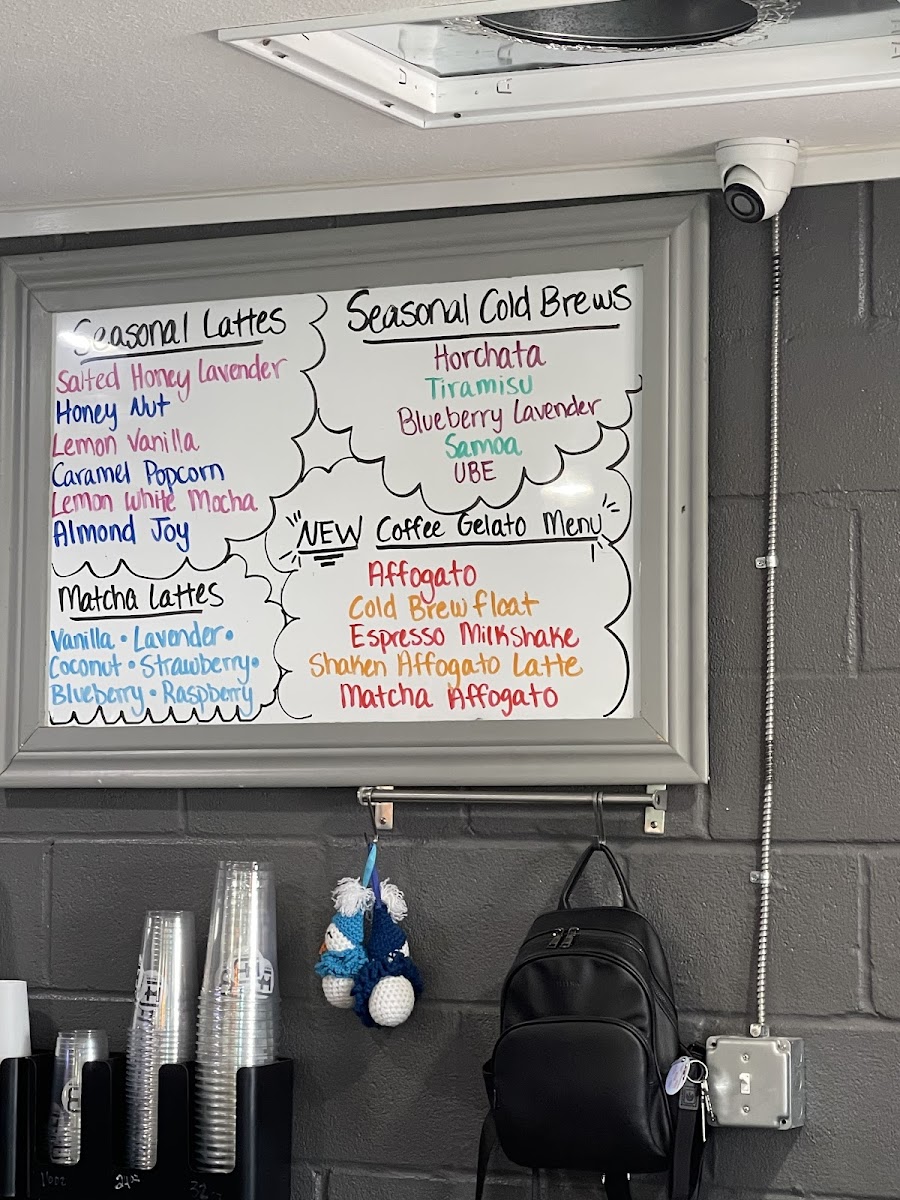 Seasonal Lattes
Salted Honey Lavender
Honey Nut
Lemon Vanilla
Caramel Popcorn
Lemon White Mocha
Almond Joy
Matcha Lattes
Vanilla • Lavender •
Coconut • Strawberry •
Blueberry • Raspberry
Seasonal Cold Brews
Horchata
Tiramisu
Blueberry Lavender
Samoa
UBE
NEW Coffee Gelato Menu
Affogato
Cold Brew float
Espresso Milkshake
Shaken Affogato Latte
Matcha Affogato
16oz